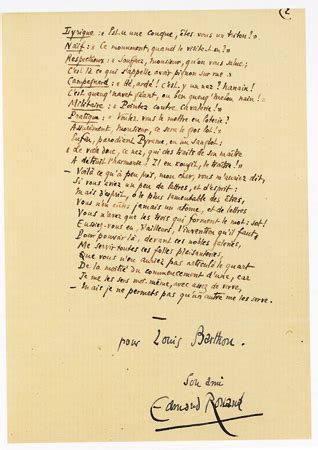 (2
Lyrique : « Est-ce une conque, êtes-vous un triton ? »
Naïf : « Ce monument, quand le visite-t-on ? »
Respectueux : « Souffrez, monsieur, qu'on vous salue ;
C'est là ce qui s'appelle avoir pignon sur rue »
Campagnard : « Hé, ardé ! C'est-y un nez ? Nanain !
C'est queuqu'navet géant, ou ben queuqu'melon nain ! »
Militaire : « Pointez contre cavalerie ! »
Pratique : « Voulez-vous le mettre en loterie ?
Assurément, monsieur, ce sera le gros lot ! »
Enfin, parodiant Pyrame, en un sanglot :
« Le voilà donc, ce nez, qui des traits de son maître
A détruit l'harmonie ! Il en rougit, le traître ! »
- Voilà ce qu'à peu près, mon cher, vous m'auriez dit,
Si vous aviez un peu de lettres, et d'esprit :
Mais d'esprit, ô le plus lamentable des êtres,
Vous n'en eûtes jamais un atome, et de lettres
Vous n'avez que les trois qui forment le mot : sot !
Eussiez-vous eu, d'ailleurs, l'invention qu'il faut,
Pour pouvoir là, devant ces nobles galeries,
Me servir toutes ces folles plaisanteries,
Que vous n'en eussiez pas articulé le quart
De la moitié du commencement d'une, car
Je me les sers moi-même, avec assez de verve,
- Mais je ne permets pas qu'un autre me les serve.
pour Louis Barthou.
Son ami
Edmond Rostand